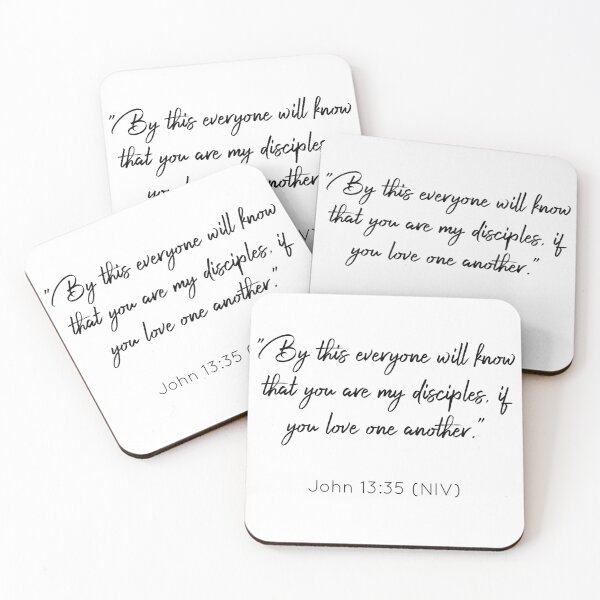 "By this everyone will know
that you are my disciples,
you another
"By this everyone will know
that you are my disciples, if
you love one another."
"By this everyone will know
that you are my disciples, if
you love one another."
John 13:35 (
"By this everyone will know
that you are my disciples, if
you love one another."
John 13:35 (NIV)